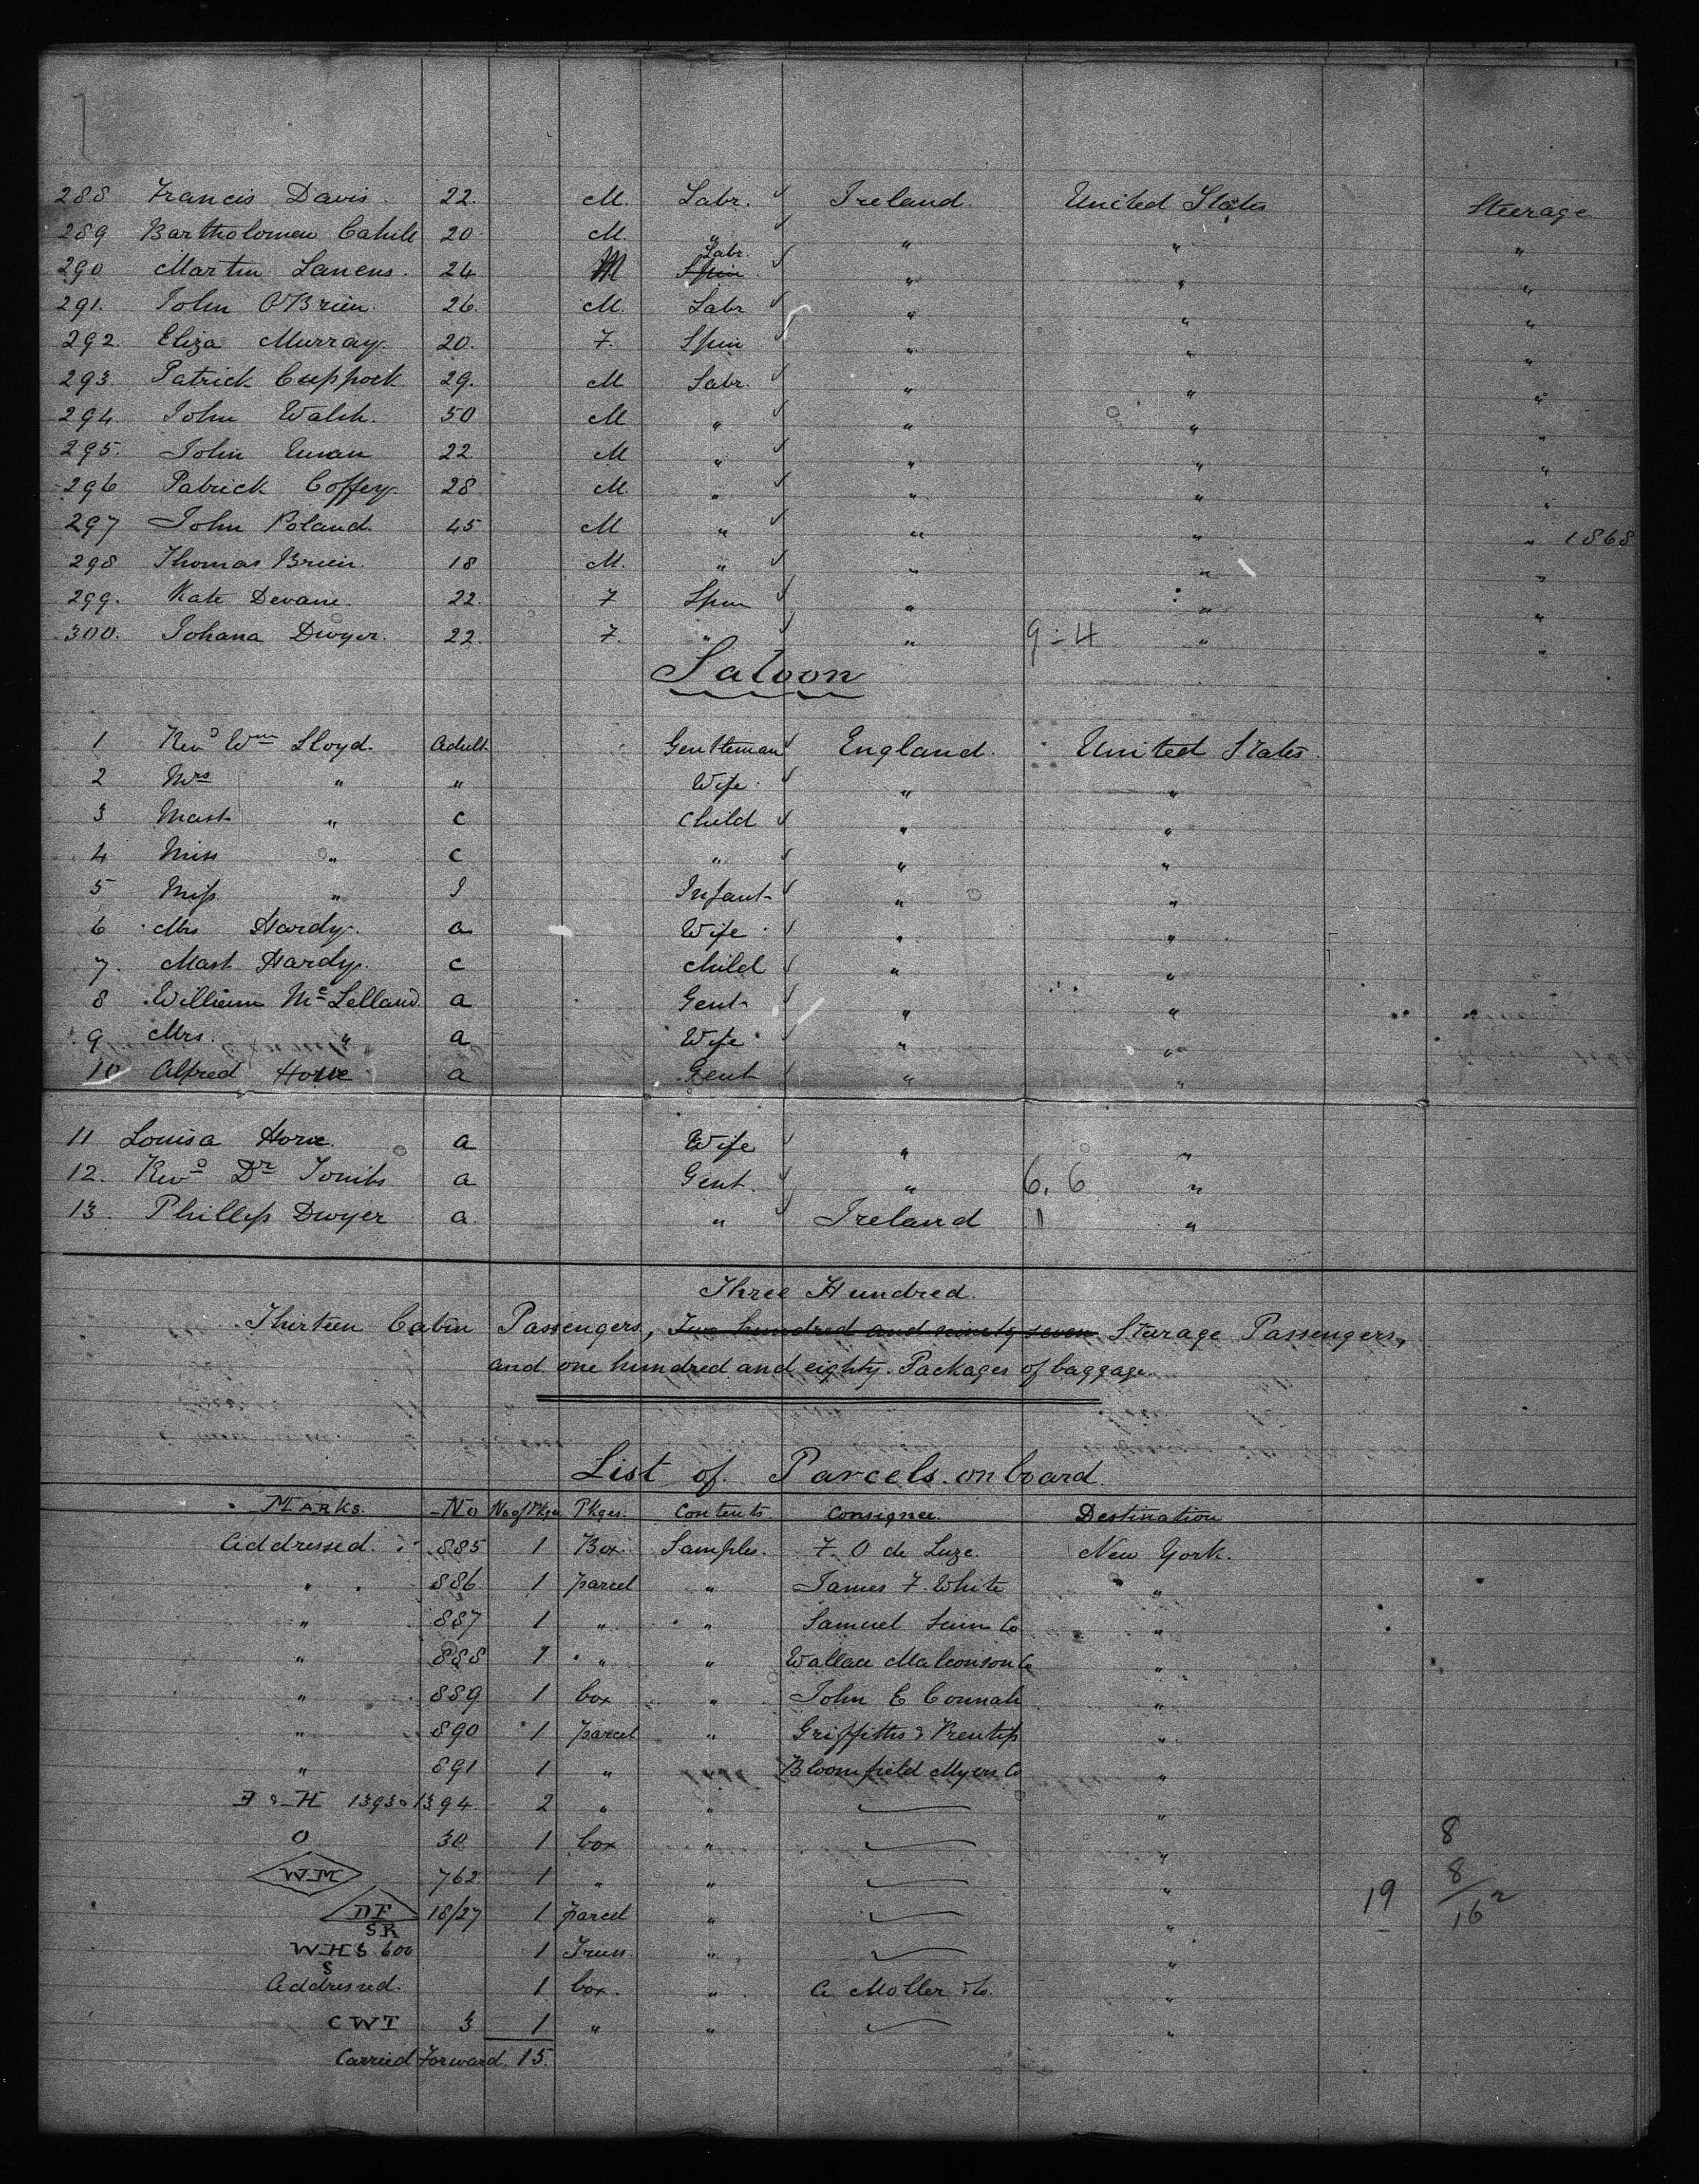 288 Francis Davis. 22. M. Labr. Ireland. United States Steerage
289 Bartholomew Cahill 20 M. " " " "
290 Martin 24 M Labr Spin " " "
291. John O'Brien. 26. M. Labr " " "
292. Eliza Murray. 20. F. Spin " " "
293. Patrick 29. M Labr. " " "
294. John Walsh. 50 M " " " "
295. John 22 M " " " "
296 Patrick Coffey. 28 M. " " " "
297 John Poland. 45 M " " " " 1868
298 Thomas Brien. 18 M. " " " "
299. Kate Devane. 22. F Spin " " "
300. Johana Dwyer. 22. F. " " 9-4 " "
Saloon
1 Revd Wm Lloyd. Adult Gentleman England. United States.
2 Mrs " " Wife " "
3 Mast " C Child " "
4 Miss " C " " "
5 Miss " I Infant " "
6 Mrs Hardy. a Wife " "
7. Mast Hardy. C Child " "
8 William McLelland. a Gent " "
9 Mrs. " a Wife " "
10 Alfred Horne a Gent " "
11 Louisa Horne. a Wife " "
12. Revd Dr a Gent. " 6. 6 "
13. Phillip Dwyer a. " Ireland 1 "
Three Hundred.
Thirteen Cabin Passengers, Two hundred and ninety seven Sterage Passengers,
and one hundred and eighty Packages of baggage.
List of Parcels on board.
Marks. No No of Pkgs Pkges. Contents. Consignee. Destination
Addressed. 885 1 Box Samples. F. O de Luze. New York.
" 886 1 parcel " James F. White "
" 887 1 " " Samuel Co "
" 888 1 " " Wallace Malconson Co "
" 889 1 box " John E Connah "
" 890 1 parcel " Griffiths & Prentiss "
" 891 1 " " Bloomfield Myers Co "
& H 1393 1394 2 " " "
O 30 1 box " " 8
WM 762 1 " " " 8
DF SR 18/27 1 parcel " " 19 16
WHS 600 S 1 Truss. " "
Addressed. 1 box. " Moller & Co. "
CWT 3 1 " " "
Carried Forward. 15.